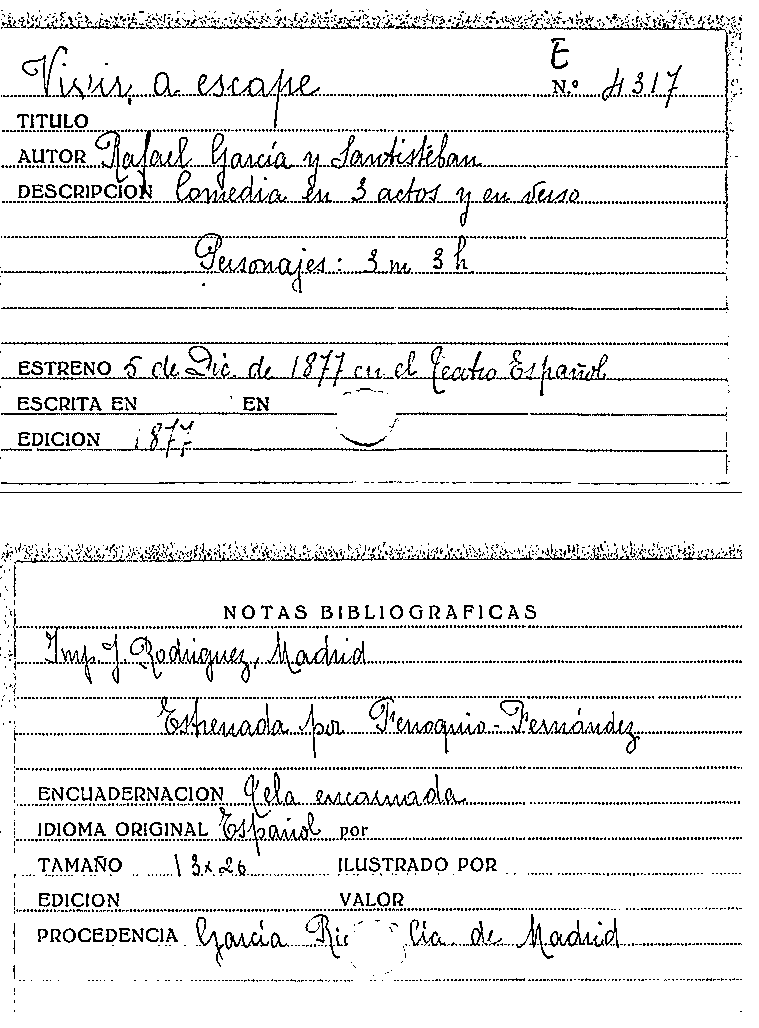 E
Vivir a escape Nº 4317
TITULO
AUTOR Rafael García y Santistéban
DESCRIPCION Comedia en 3 actos y en verso
Personajes: 3 m 3 h
ESTRENO 5 de Dic. de 1877 en el Teatro Español
ESCRITA EN EN
EDICION 1877
NOTAS BIBLIOGRAFICAS
Imp. J. Rodriguez, Madrid
Estrenada por Fenoquio-Fernández
ENCUADERNACION Tela encarnada
IDIOMA ORIGINAL Español por
TAMAÑO 13x20 ILUSTRADO POR
EDICION VALOR
PROCEDENCIA García Cía. de Madrid